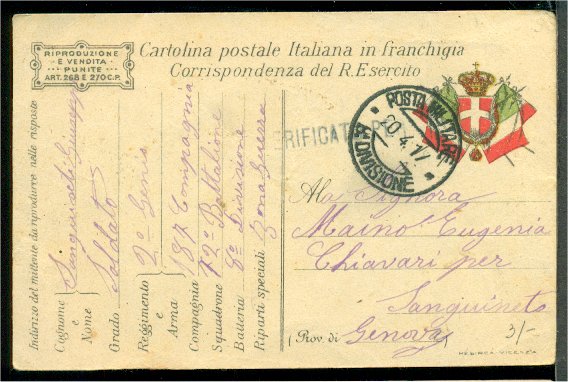 RIPRODUZIONE
E VENDITA
PUNITE
ART. 268 E 270 C.P.
Cartolina postale Italiana in franchigia
Corrispondenza del R. Esercito
VERIFICATO
POSTA MILITARE
20.4.17
8ª DIVISIONE
Indirizzo del mittente da riprodurre nelle risposte
Cognome e Nome Sanguineti Giuseppe
Grado Soldato
Reggimento e Arma 2° Genio
Compagnia 187 Compagnia
Squadrone 72° Battalione
Batteria 8° Divisione
Riparti speciali Zona Guerra
Alla Signora
Maino Eugenia
Chiavari per
Sanguineto
(Prov. di Genova)
3/-